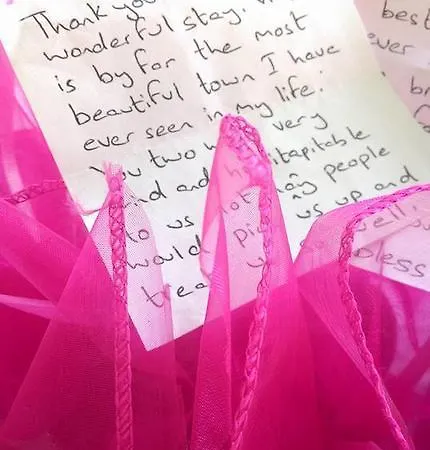 Thank you
wonderful stay.
is by far the most
beautiful town I have
ever seen in my life.
You two very
and
to us not many people
would us up and
well
bless
best
ever